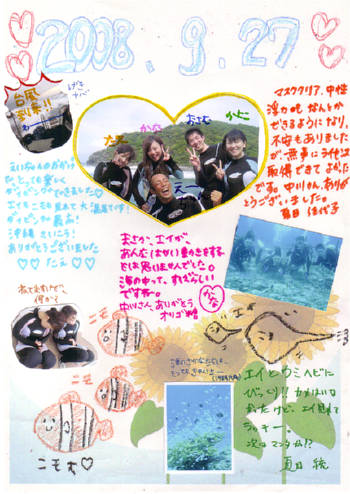 2008.9.27
台風
到来!!
たえ
かな
おさむ
かよ
えー
マスククリア、中性
浮力も なんとか
できるようになり、
不安もありました
が、無事にライセンス
取得できて よかった
です。中川さん、ありが
とうございました。
えいちゃんのおかげ
で、とっても楽しく
ダイビングできました♡
エイもニモも見れて大満足です!
ダイビング最高!
沖縄さいこう!
ありがとうございました
♡♡たえ♡
まさか、エイが、
あんな(はやい)動きをする
とは思いませんでした。
海の中って、すばらしい
ですネ。
中川さん、ありがとう
かな
ニモ
ニモ
ニモ大♡
エイとウミヘビに
びっくり!! カメはいな
かったけど、エイ見れて
ラッキー。
次はマンタかな!?
夏目